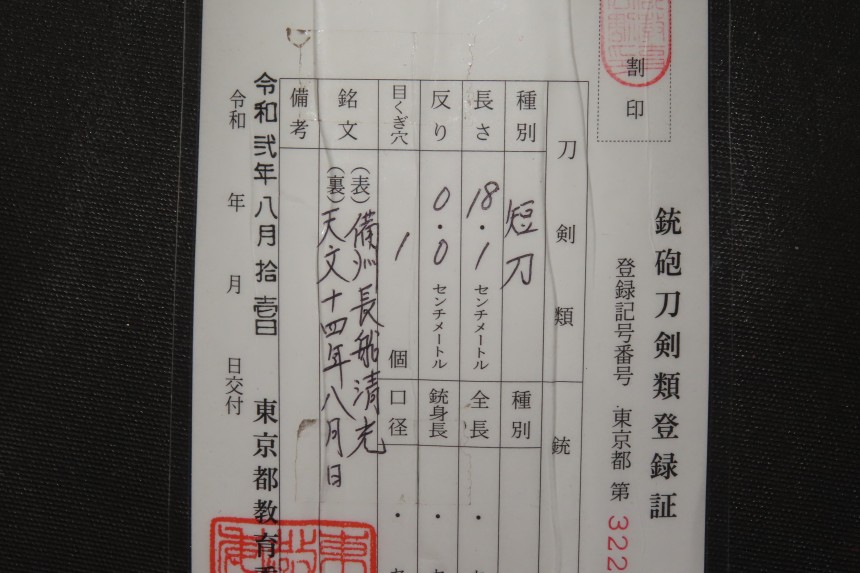 割印
銃砲刀剣類登録証
登録記号番号 東京都 第 322
刀剣類
銃
種別 短刀
種別
長さ 18.1 センチメートル
全長 ・
反り 0.0 センチメートル
銃身長 ・
目くぎ穴 1 個
口径 ・
銘文 (表) 備州長船清光
(裏) 天文十四年八月日
備考
令和弐年八月拾壱日 東京都教育
令和 年 月 日交付